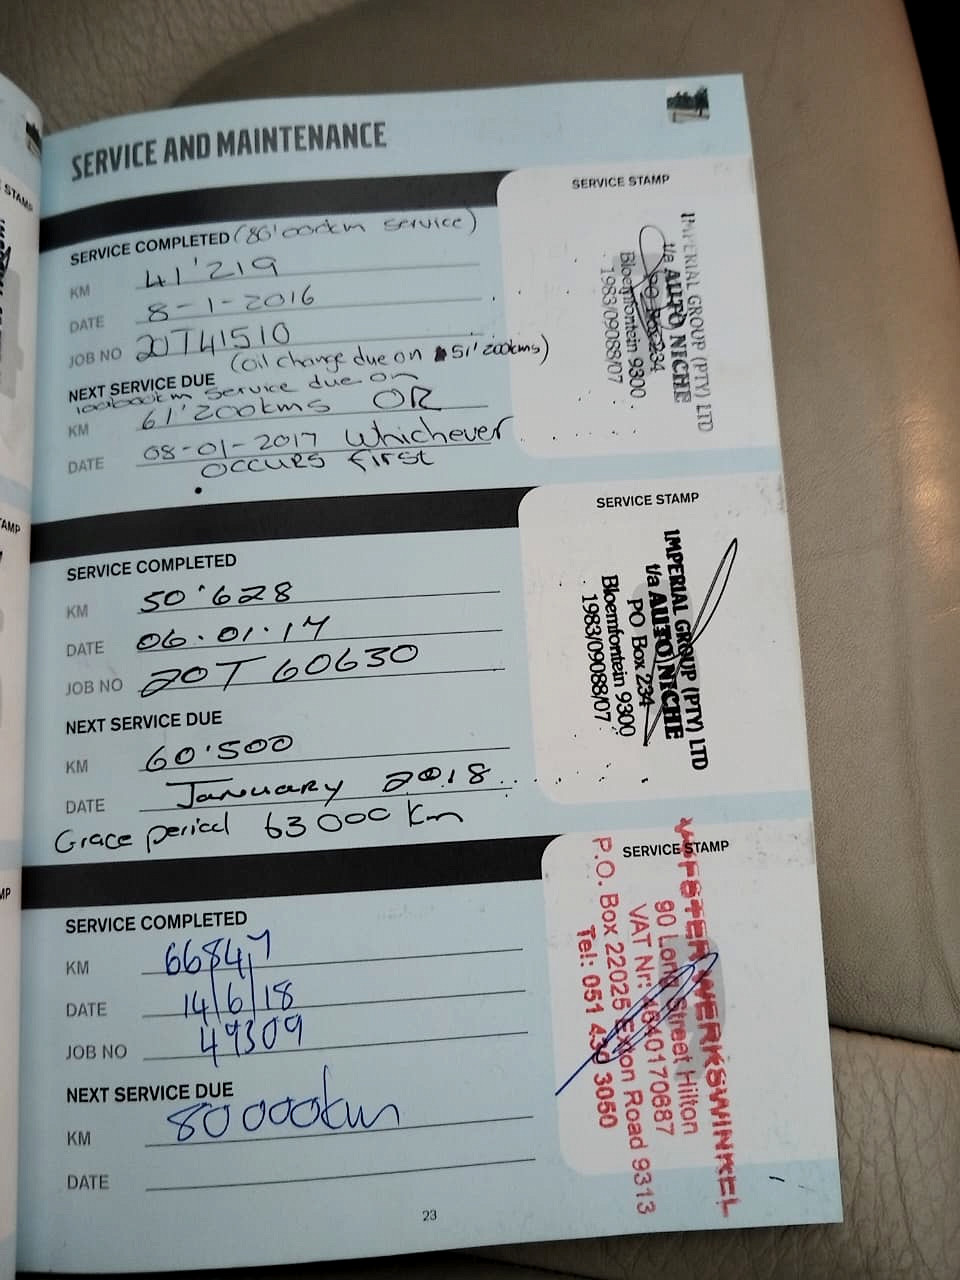 SERVICE AND MAINTENANCE
SERVICE STAMP
SERVICE COMPLETED (80'000km service)
KM 41'219
DATE 8-1-2016
JOB NO 20T41510
(oil change due on 51'200kms)
NEXT SERVICE DUE
100000km service due on
KM 61'200kms OR
DATE 08-01-2017 whichever
occurs first
IMPERIAL GROUP (PTY) LTD
t/a AUTO NICHE
PO Box 234
Bloemfontein 9300
1983/09088/07
SERVICE STAMP
SERVICE COMPLETED
KM 50'628
DATE 06.01.17
JOB NO 20T60630
NEXT SERVICE DUE
KM 60'500
DATE January 2018
Grace period 63000 km
IMPERIAL GROUP (PTY) LTD
t/a AUTO NICHE
PO Box 234
Bloemfontein 9300
1983/09088/07
SERVICE STAMP
SERVICE COMPLETED
KM 66847
DATE 14/6/18
JOB NO 49309
NEXT SERVICE DUE
KM 80000km
DATE
WERKSWINKEL
90 Long Street Hilton
VAT Nr: 4640170687
P.O. Box 22025 Exton Road 9313
Tel: 051 430 3050
23
STAMP